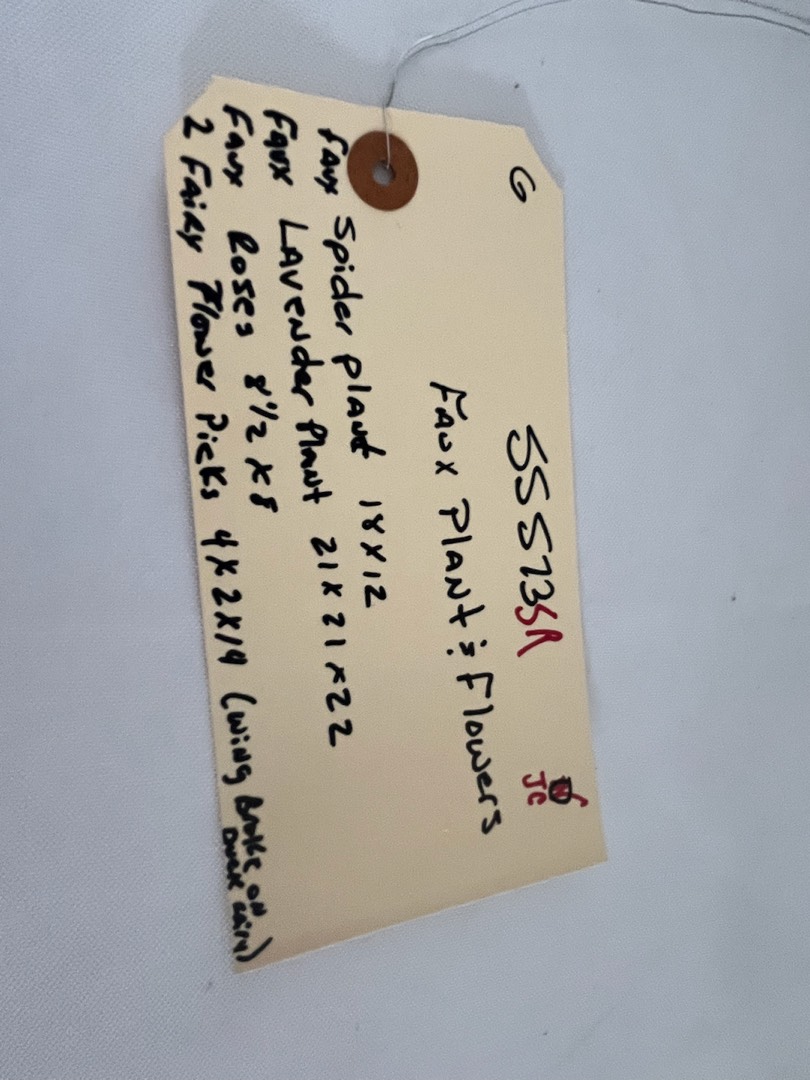 G
SSS73SR
JC
Faux Plant & Flowers
Faux Spider plant 18x12
Faux Lavender Plant 21x21x22
Faux Roses 8 1/2 x 8
2 Fairy Flower Picks 4x2x19 (Wing Broke on